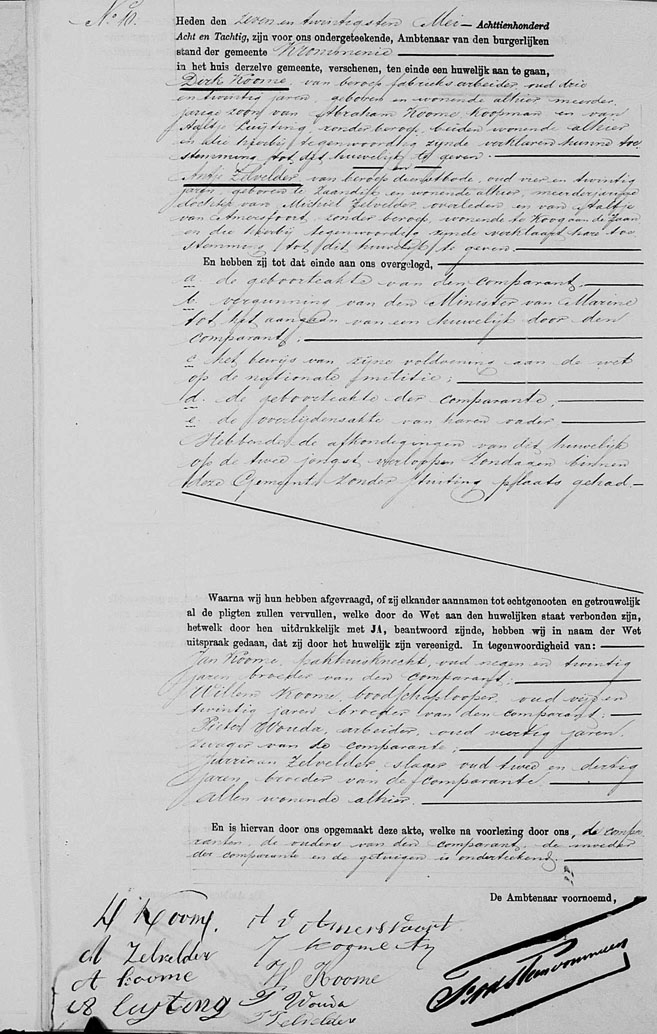 Heden den Zeven en twintigsten Mei Achttienhonderd
Acht en Tachtig, zijn voor ons ondergeteekende, Ambtenaar van den burgerlijken
stand der gemeente Krommenie
in het huis derzelve gemeente, verschenen, ten einde een huwelijk aan te gaan,
Dirk Koome, van beroep fabrieksarbeider, oud drie
en twintig jaren, geboren en wonende alhier meerder
jarige zoon van Abraham Koome Koopman en van
Aaltje Luijting, zonder beroep, beiden wonende alhier
en die hierbij tegenwoordig zijnde verklaren hunne toe
stemming tot dit huwelijk te geven.
Antje Zelvelder van beroep dienstbode, oud vier en twintig
jaren, geboren te Zaandijk en wonende alhier, meerderjarige
dochter van Michiel Zelvelder, overleden en van Aaltje
van Amersfoort, zonder beroep, wonende te Koog aan de Zaan
en die hierbij tegenwoordig zijnde verklaart hare toe
stemming tot dit huwelijk te geven.
En hebben zij tot dat einde aan ons overgelegd,
a de geboorteakte van den comparant.
b. vergunning van den Minister van Marine
tot het aangaan van een huwelijk door den
comparant;
c het bewijs van zijne voldoening aan de wet
op de nationale militie;
d. de geboorteakte der comparante,
e. de overlijdensakte van haren vader
Hebbende de afkondigingen van dit huwelijk
op de twee jongst verloopen Zondagen binnen
deze Gemeente zonder stuiting plaats gehad
Waarna wij hun hebben afgevraagd, of zij elkander aannamen tot echtgenooten en getrouwelijk
al de pligten zullen vervullen, welke door de Wet aan den huwelijken staat verbonden zijn,
hetwelk door hen uitdrukkelijk met JA, beantwoord zijnde, hebben wij in naam der Wet
uitspraak gedaan, dat zij door het huwelijk zijn vereenigd. In tegenwoordigheid van:
Jan Koome, pakhuisknecht, oud negen en twintig
jaren broeder van den comparant;
Willem Koome, boodschaplooper, oud vijf en
twintig jaren broeder van den comparant;
Pieter Wouda, arbeider, oud veertig jaren,
zwager van de comparante;
Jurriaan Zelvelder slager oud twee en dertig
jaren, broeder van de comparante
allen wonende alhier.
En is hiervan door ons opgemaakt deze akte, welke na voorlezing door ons, de compa
ranten, de ouders van den comparant, de moeder
der comparante en de getuigen is onderteekend.
De Ambtenaar voornoemd,
D Koome. A v Amersvoort
A Zelvelder J Koome
A Koome W Koome
A Luijting P Wouda
J Zelvelder